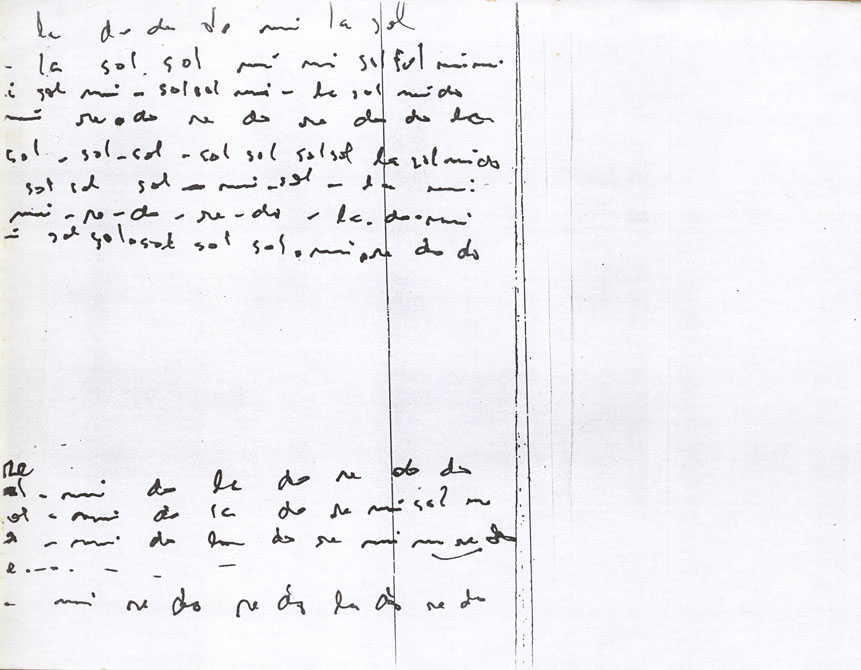 la do do do mi la sol
- la sol sol mi mi sol sol mi mi
i sol mi - sol sol mi - la sol mi do
mi re do re do re do do la
sol - sol - sol - sol sol sol sol la sol mi do
sol sol sol - mi - sol - la mi
mi - re - do - re - do - la do mi
- sol sol sol sol sol mi re do do
re
ol - mi do la do re do do
ol - mi do la do re mi sol
- mi do la do re mi re do
e . - - . - - -
- mi re do re do la do re do